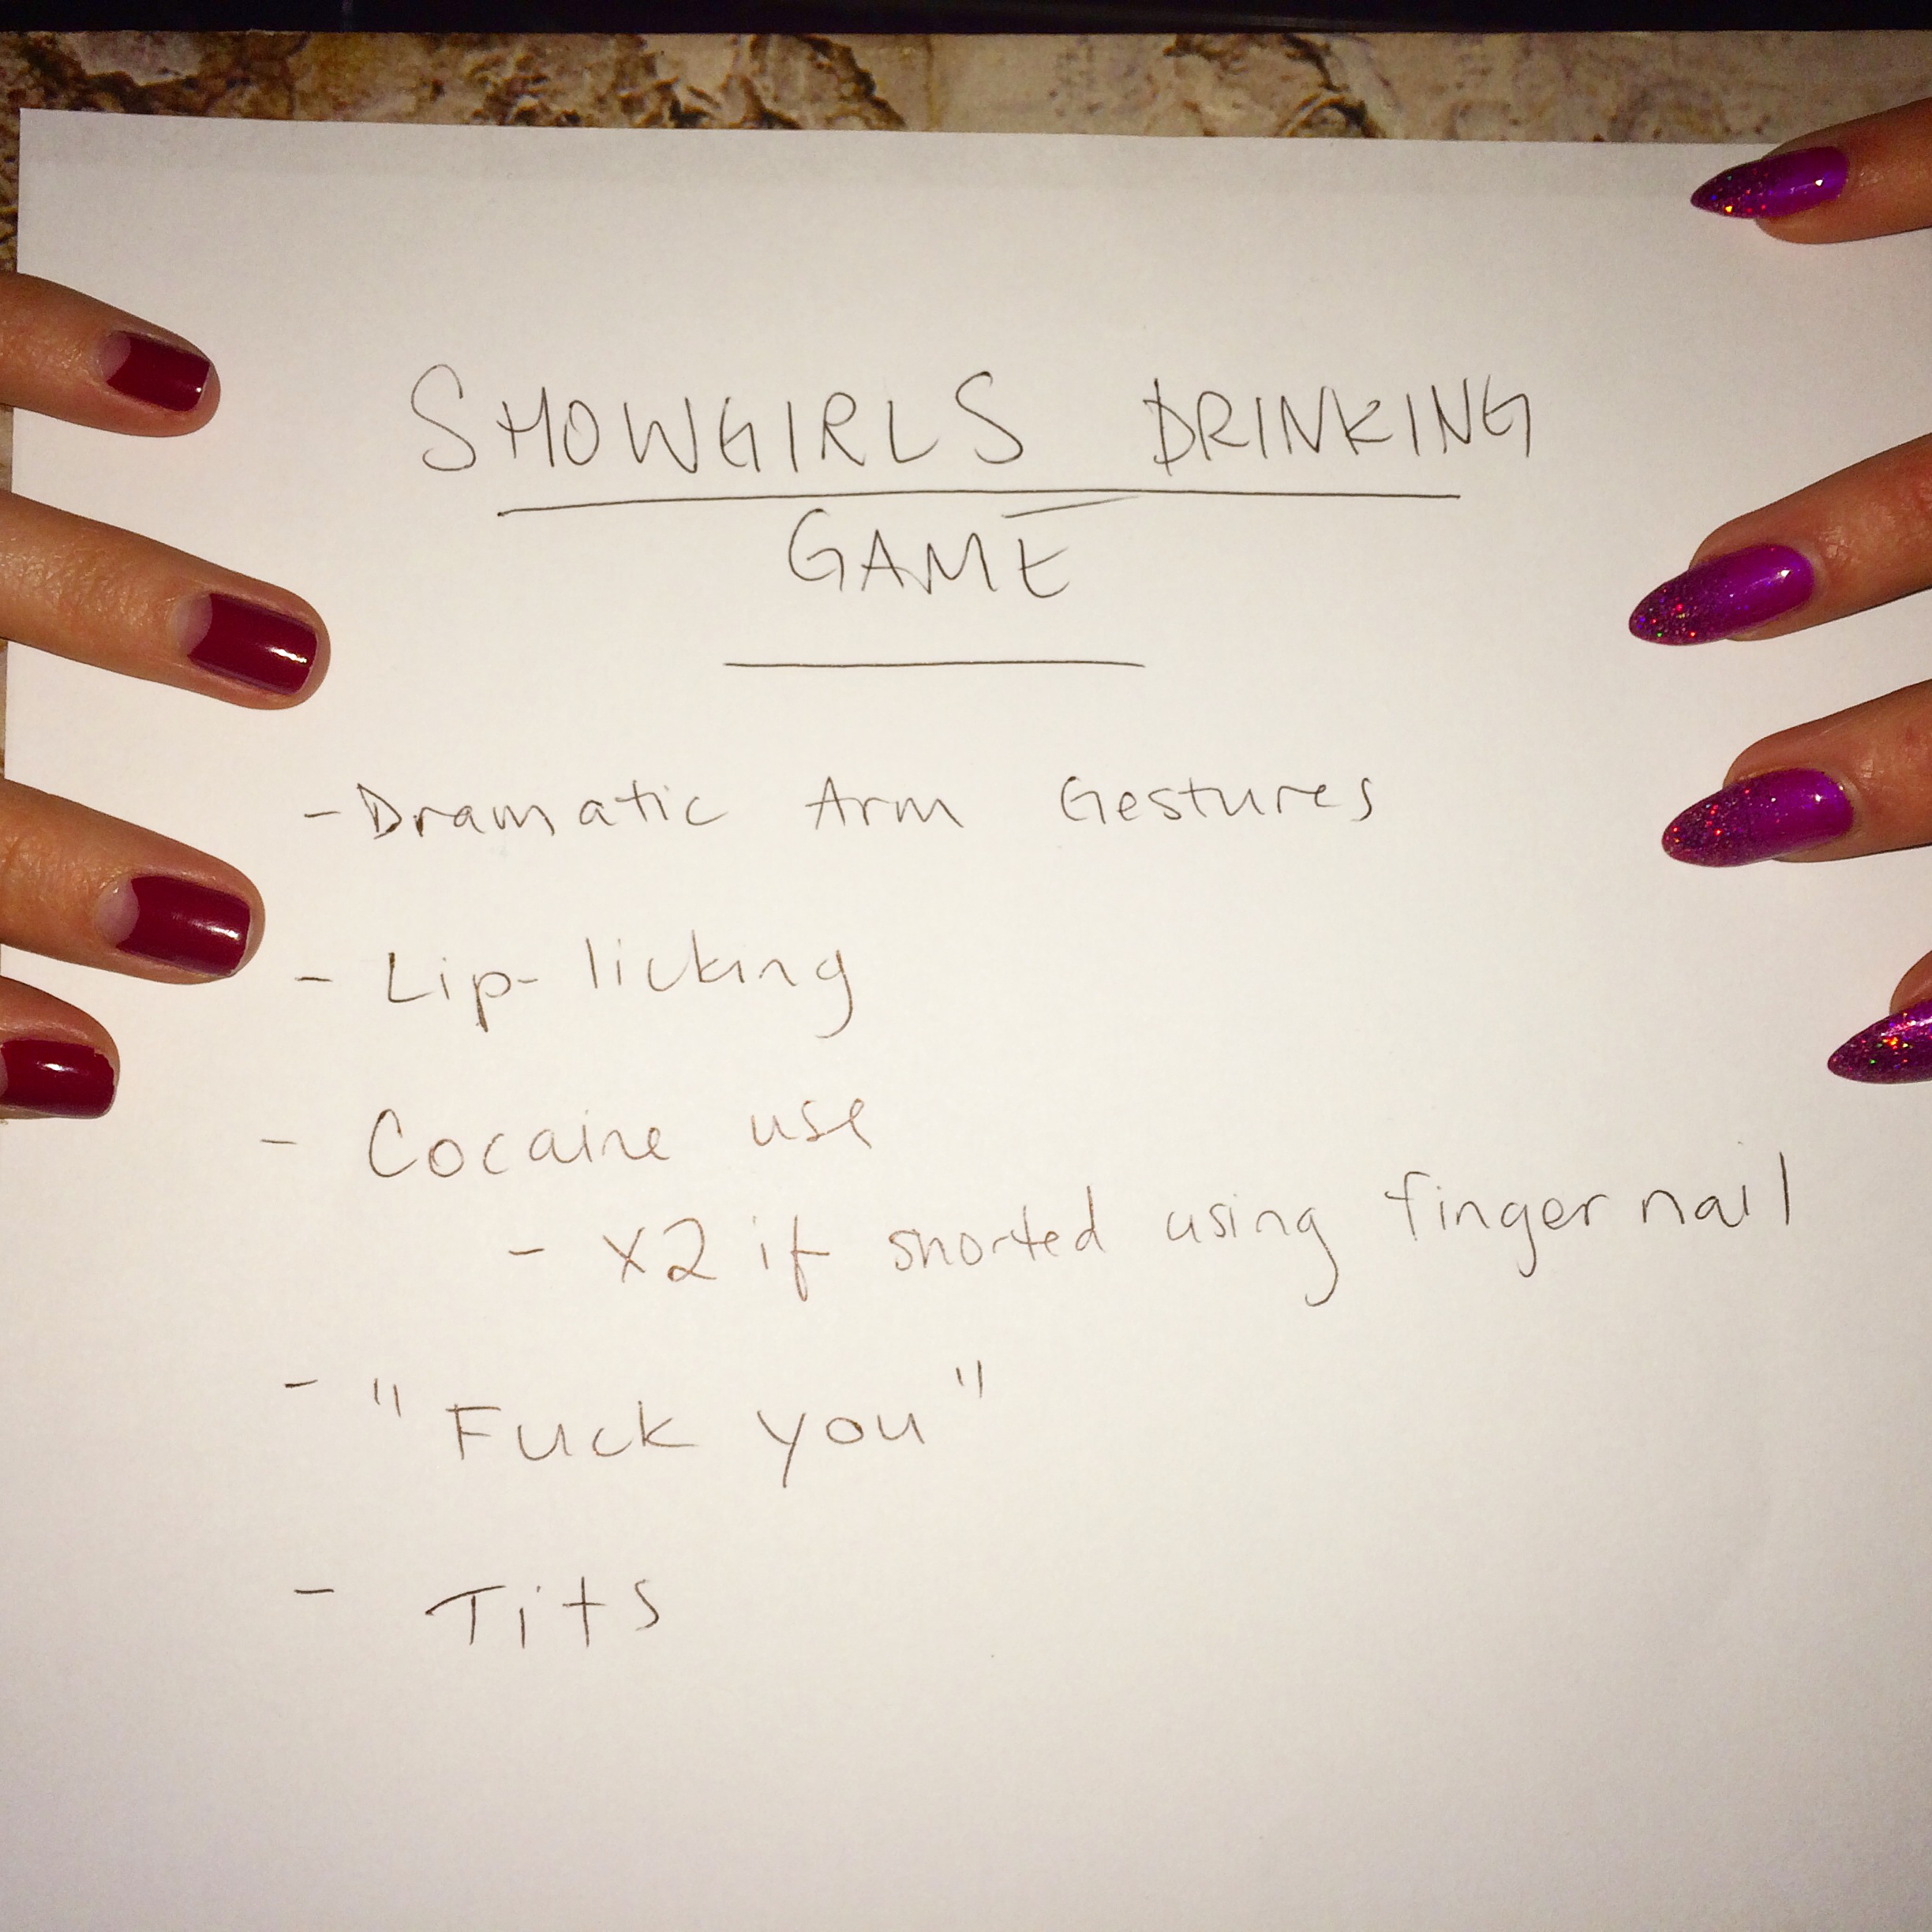 SHOWGIRLS DRINKING
GAME
- Dramatic Arm Gestures
- Lip-licking
- Cocaine use
- X2 if snorted using finger nail
- "Fuck you"
- Tits